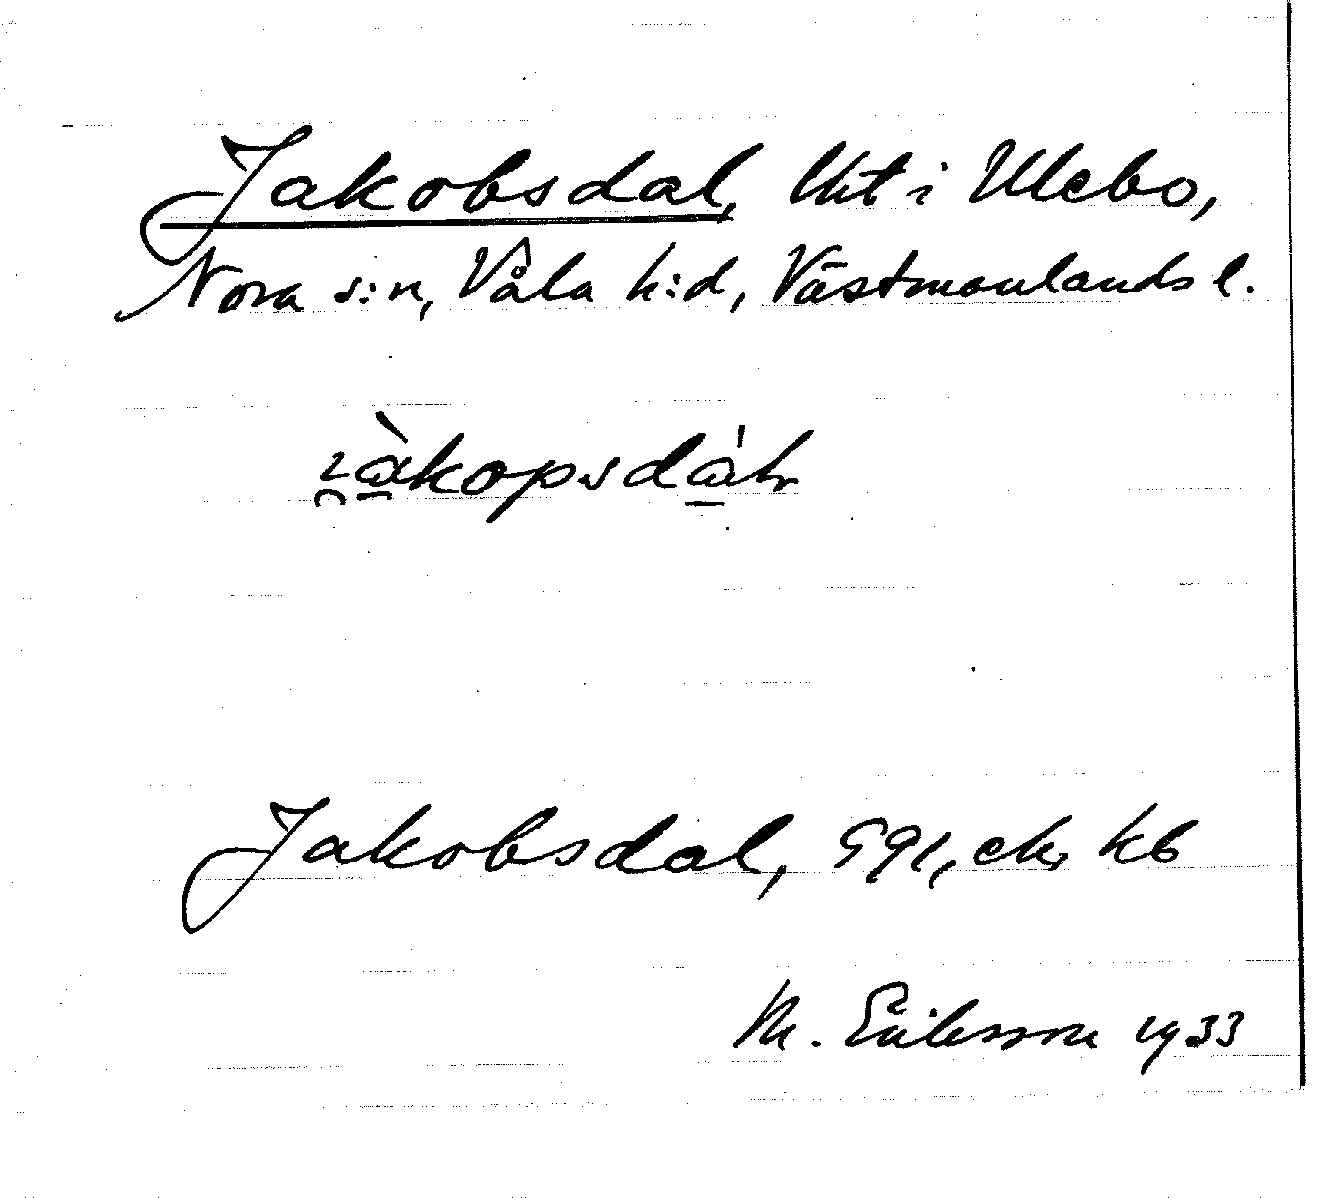 Jakobsdal, lht i Ulebo,
Nora s:n, Våla h:d, Västmanlands l.
kopsd
Jakobsdal, G91, ek, kb
M. Eriksson 1933